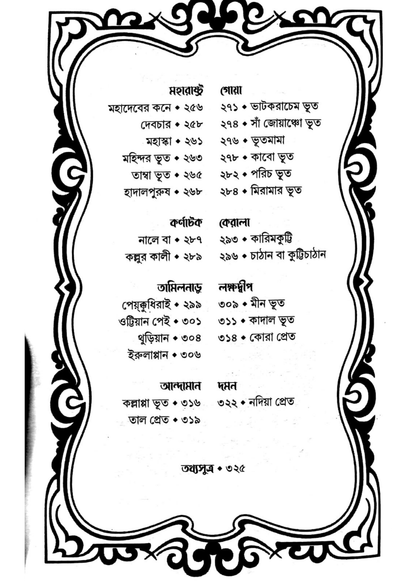 মহারাষ্ট্র
মহাদেবের কনে • ২৫৬
দেবচার • ২৫৮
মহাস্কা • ২৬১
মহিন্দর ভূত • ২৬৩
তাম্বা ভূত • ২৬৫
হাদালপুরুষ • ২৬৮
গোয়া
২৭১ • ভাটকরাচেম ভূত
২৭৪ • সাঁ জোয়াঞ্চো ভূত
২৭৬ • ভূতমামা
২৭৮ • কাবো ভূত
২৮২ • পরিচ ভূত
২৮৪ • মিরামার ভূত
কর্ণাটক
নালে বা • ২৮৭
কল্লুর কালী • ২৮৯
কেরালা
২৯৩ • কারিমকুট্টি
২৯৬ • চাঠান বা কুট্টিচাঠান
তামিলনাড়ু
পেয়্ক্কুধিরাই • ২৯৯
ওট্টিয়ান পেই • ৩০১
থুড়িয়ান • ৩০৪
ইরুলাপ্পান • ৩০৬
লক্ষদ্বীপ
৩০৯ • মীন ভূত
৩১১ • কাদাল ভূত
৩১৪ • কোরা প্রেত
আন্দামান
কল্লাপ্পা ভূত • ৩১৬
তাল প্রেত • ৩১৯
দমন
৩২২ • নদিয়া প্রেত
তথ্যসূত্র • ৩২৫